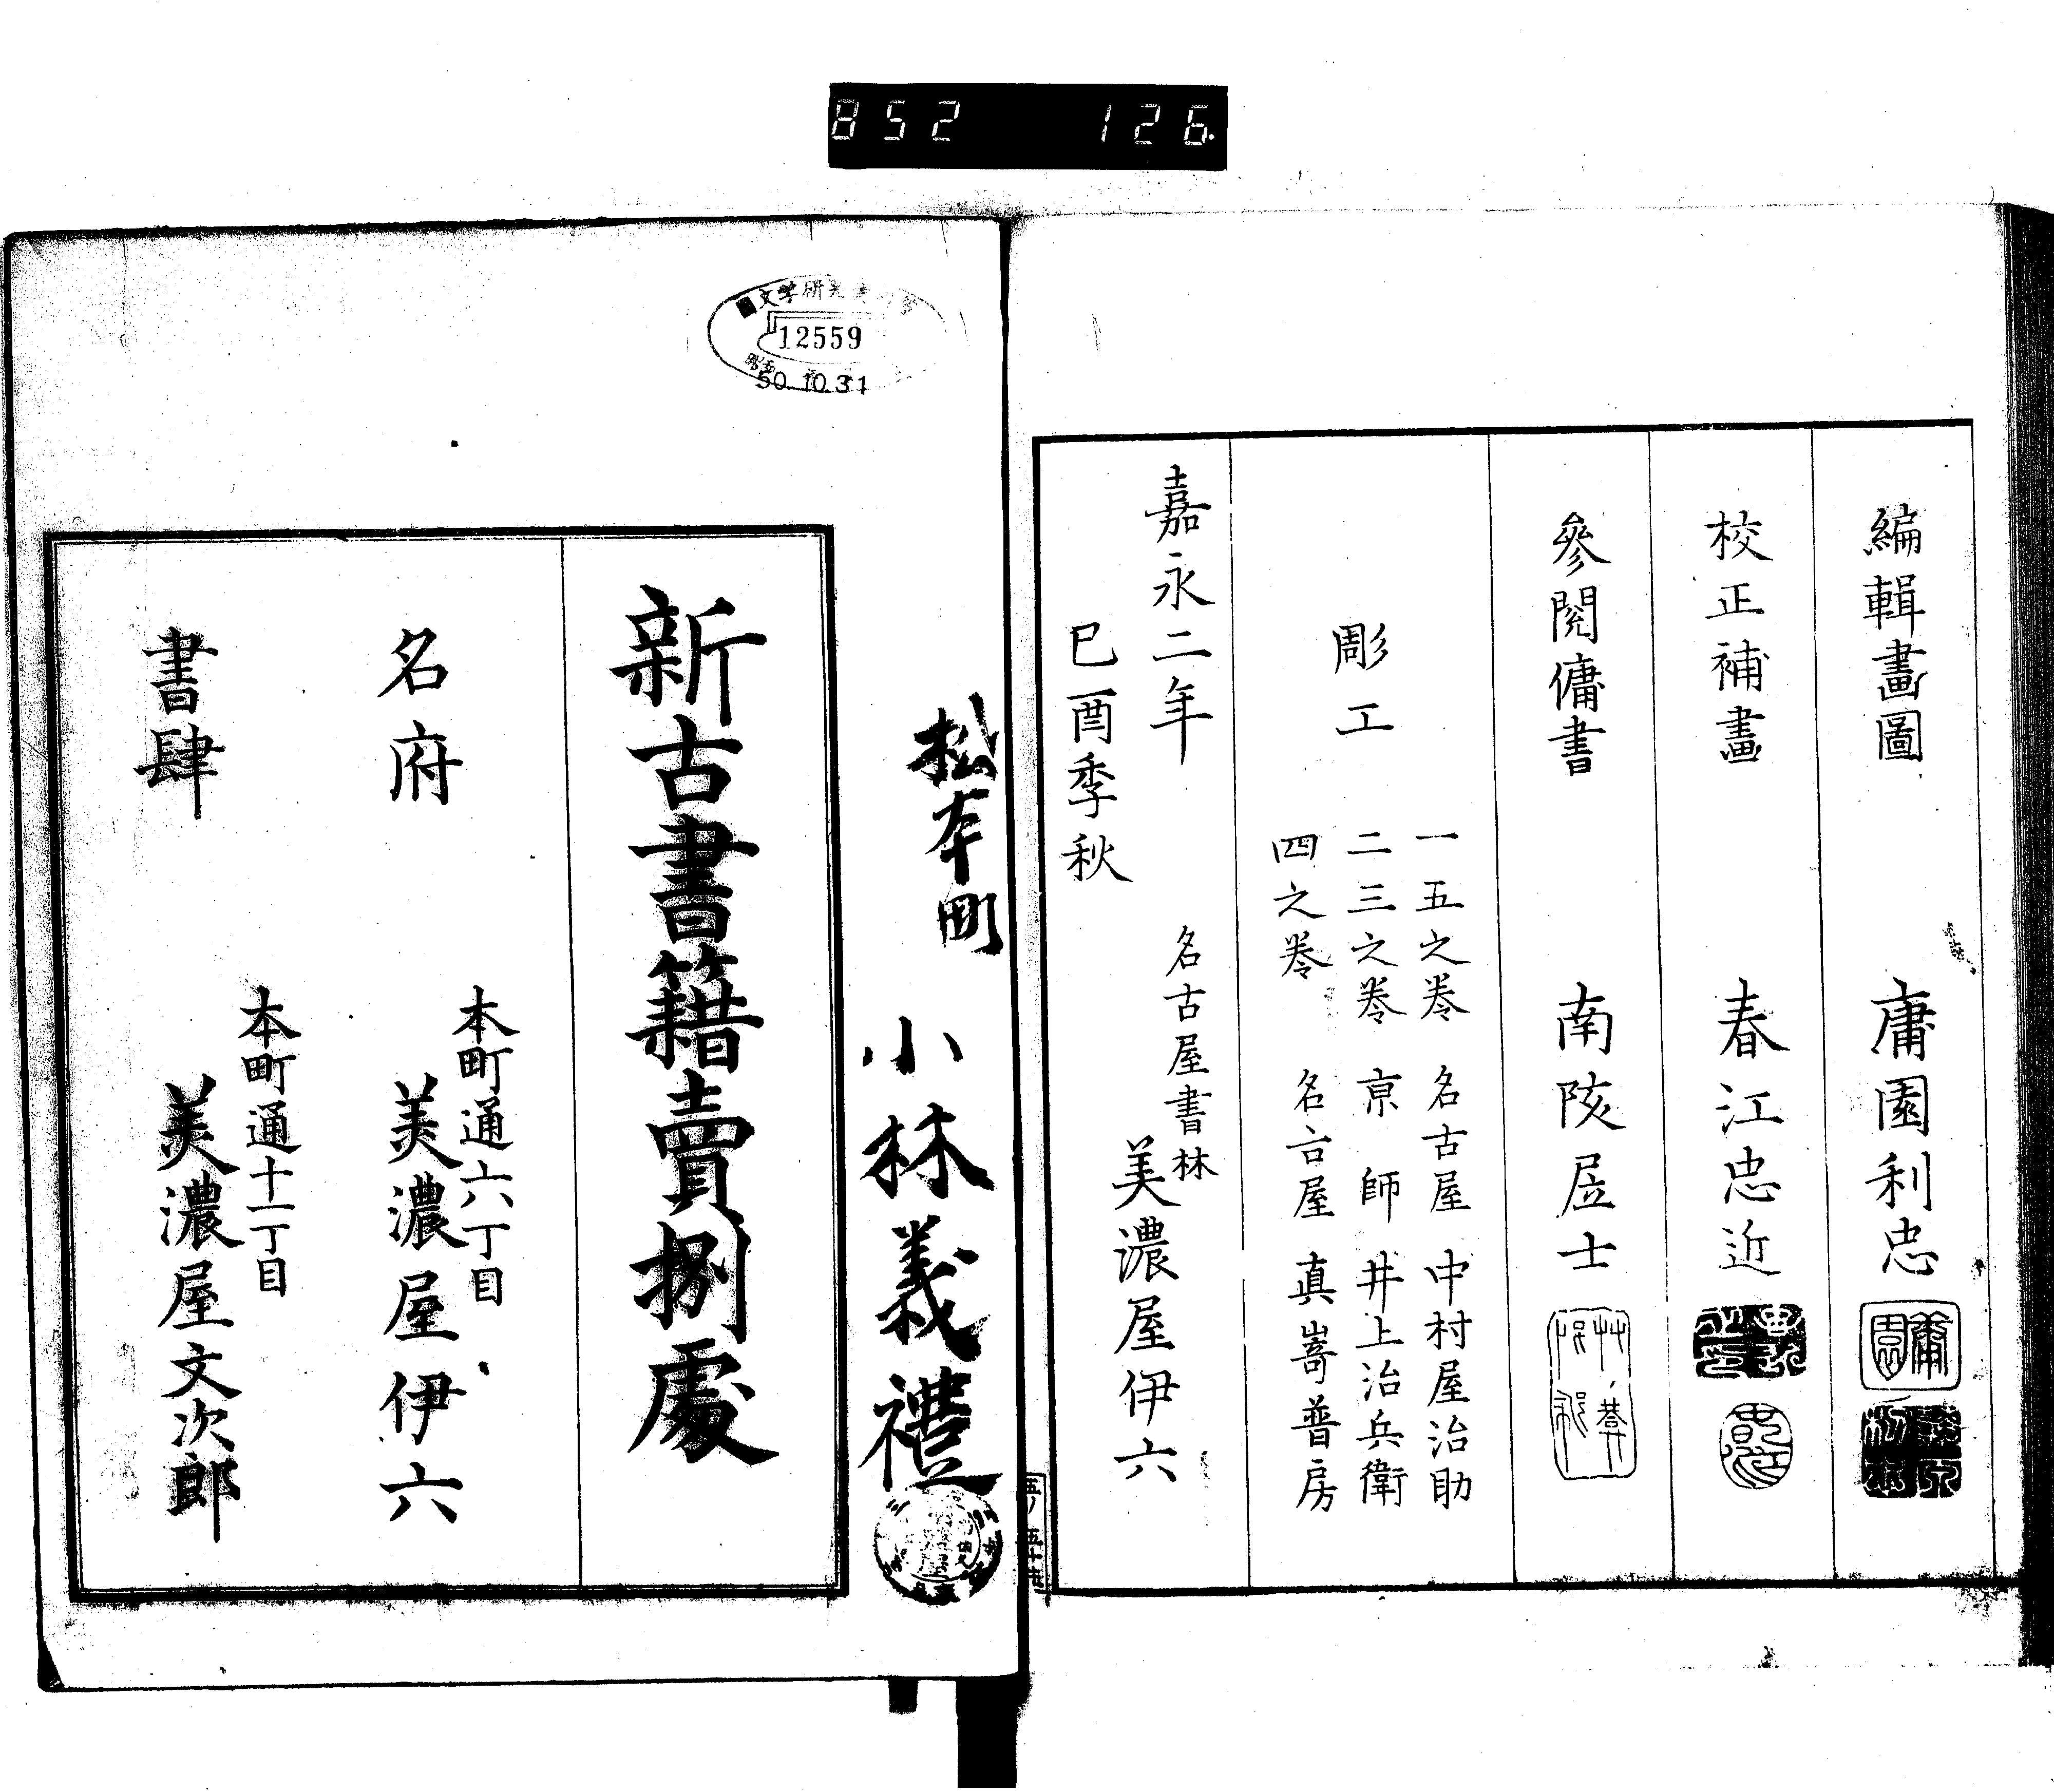 852 126
編輯畫圖 庸園利忠
校正補畫 春江忠近
參閲傭書 南陔居士
彫工
一五之巻 名古屋 中村屋治助
二三之巻 京師 井上治兵衛
四之巻 名古屋 真嵜普房
嘉永二年
己酉季秋
名古屋書林
美濃屋伊六
12559
50.10.31
松本町 小林義禮
新古書籍賣捌處
名府
本町通六丁目
美濃屋伊六
書肆
本町通十一丁目
美濃屋文次郎